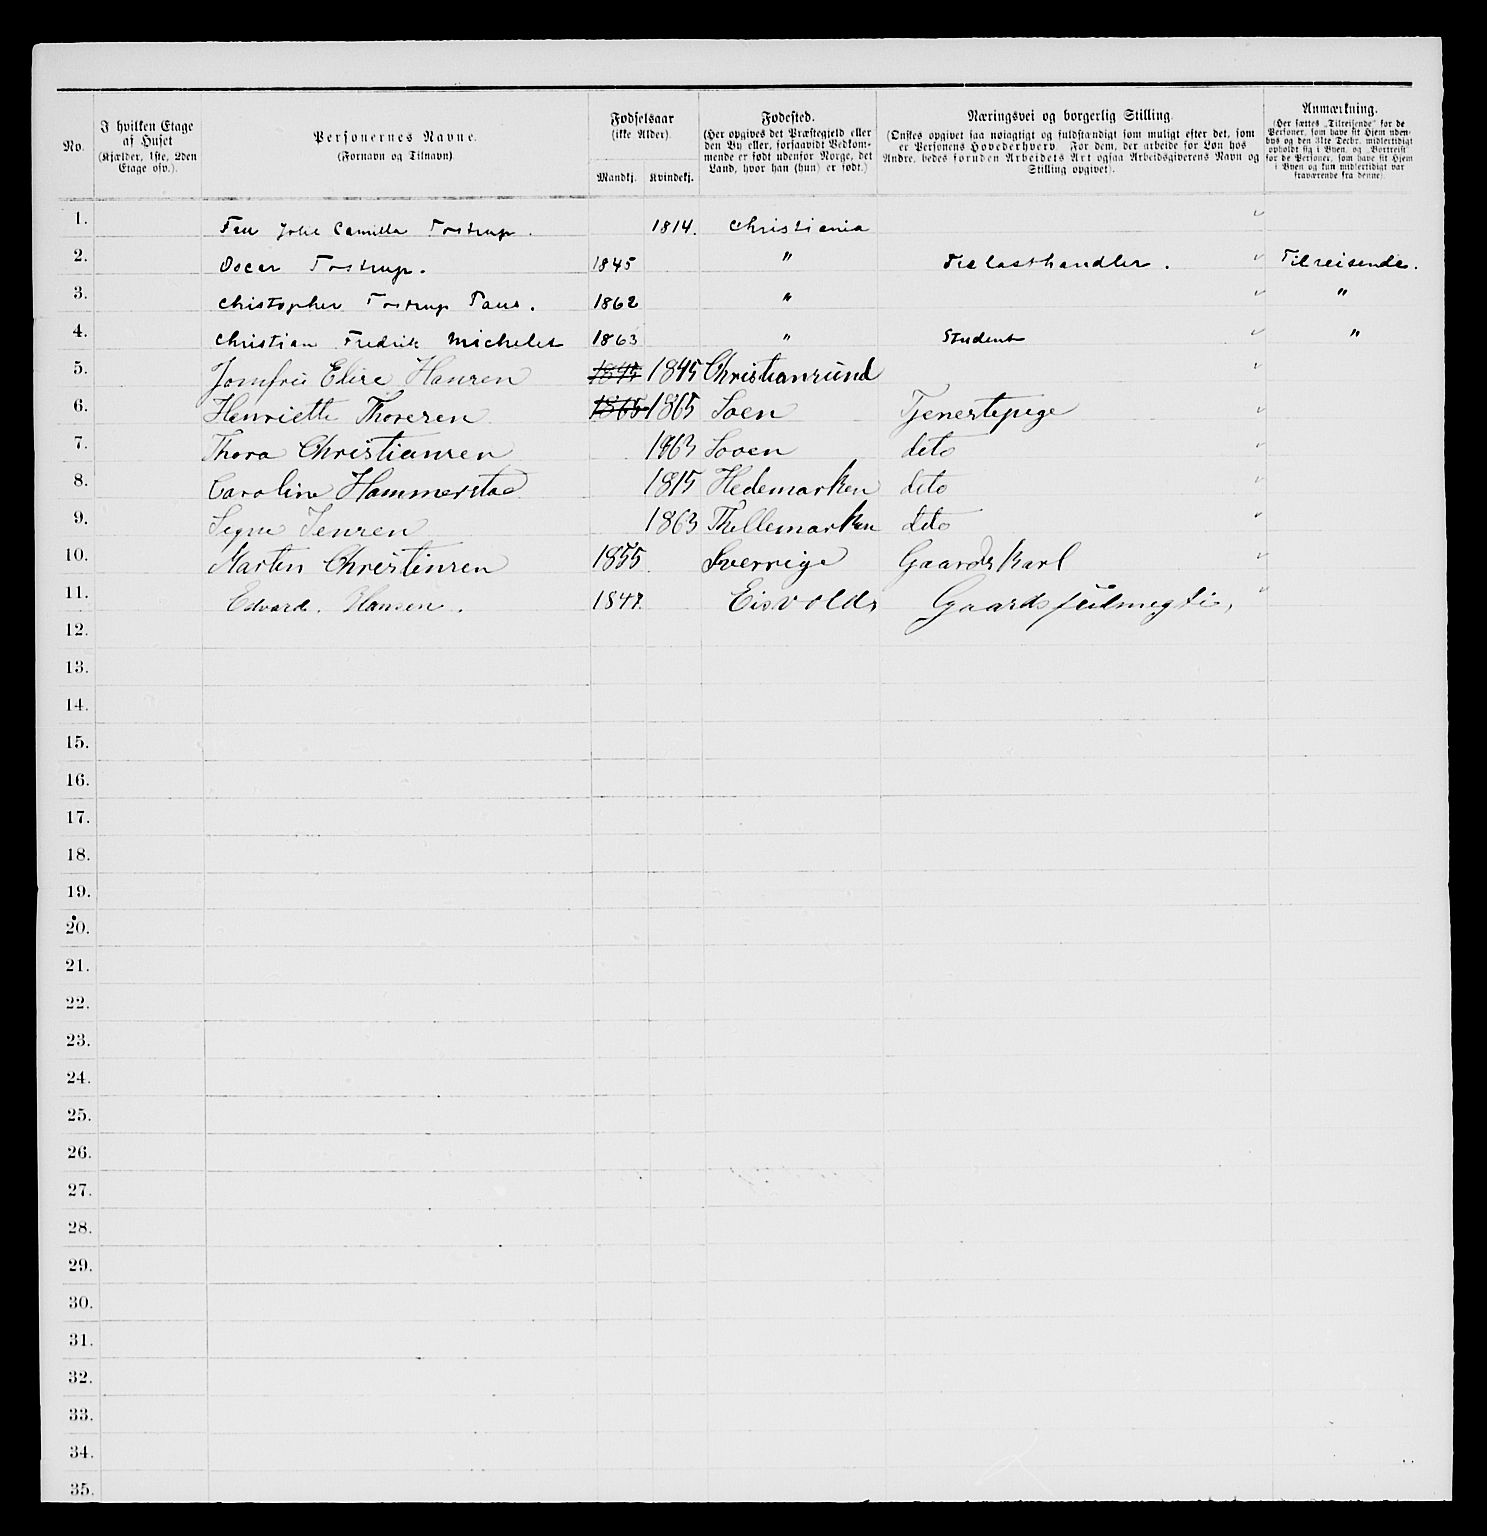 No. I hvilken Etage af Huset (Kjælder, 1ste, 2den Etage osv.). Personernes Navne. (Fornavn og Tilnavn) Fødselsaar (ikke Alder). Mandkj. Kvindekj. Fødested. (Her opgives det Præstegjeld eller den By eller, forsaavidt Vedkommende er født udenfor Norge, det Land, hvor han (hun) er født.) Næringsvei og borgerlig Stilling. (Ønskes opgivet saa nøiagtigt og fuldstændigt som muligt efter det, som er Personens Hovederhverv. For dem, der arbeide for Løn hos Andre, bedes foruden Arbeidets Art ogsaa Arbeidsgiverens Navn og Stilling opgivet). Anmærkning. (Her sættes „Tilreisende" for de Personer, som have sit Hjem udenbys og den 31te Decbr. midlertidigt opholdt sig i Byen, og „Bortreist" for de Personer, som have sit Hjem i Byen og kun midlertidigt var fraværende fra denne)
1. Camilla Tostrup. 1814. Christiania
2. Oscar Tostrup. 1845 " Trælasthandler. Tilreisende.
3. Christopher Tostrup 1862 " "
4. Christian Fredrik Michelet 1863 " Student "
5. Jomfru Elise Hansen 1845 1845 Christiansund
6. Henriette Thoresen 1865 1865 Tjenestepige
7. Thora Christiansen 1863 deto
8. Caroline Hammerstad 1815 Hedemarken deto
9. Signe Jensen 1863 Thellemarken deto
10. Martin Christensen 1855 Sverrige Gaardskarl
11. Edvard. Hansen. 1847. Eisvolds
12.
13.
14.
15.
16.
17.
18.
19.
20.
21.
22.
23.
24.
25.
26.
27.
28.
29.
30.
31.
32.
33.
34.
35.